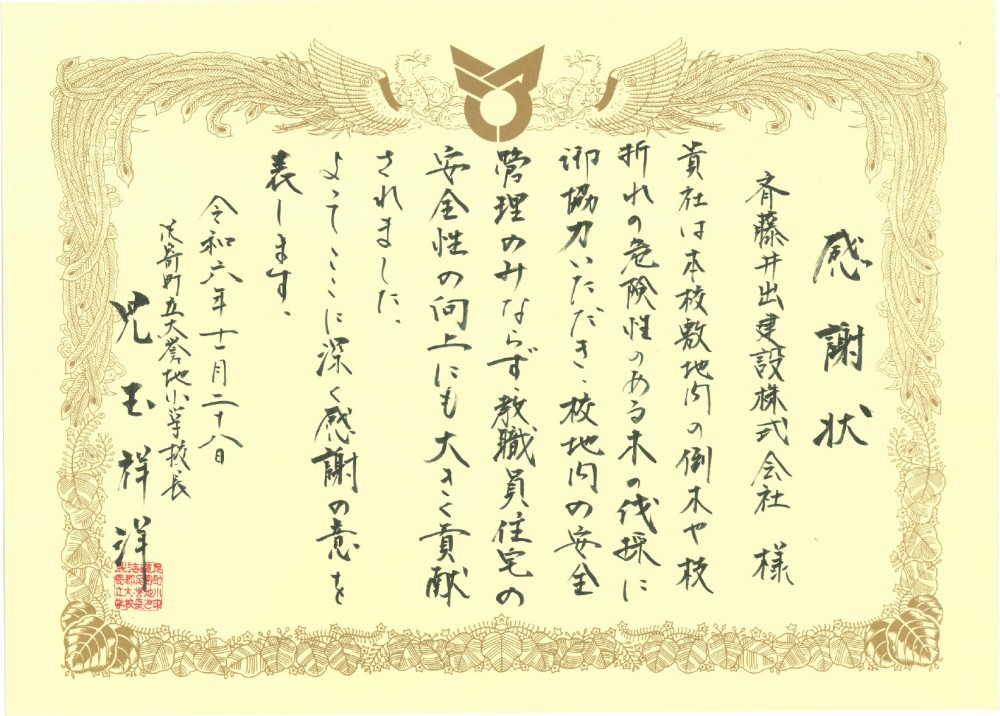 感謝状
斉藤井出建設株式会社 様
貴社は本校敷地内の倒木や枝
折れの危険性のある木の伐採に
御協力いただき、校地内の安全
管理のみならず、教職員住宅の
安全性の向上にも大きく貢献
されました、
よってここに深く感謝の意を
表します、
令和六年十一月二十八日
足寄町立大誉地小学校長
児玉祥洋